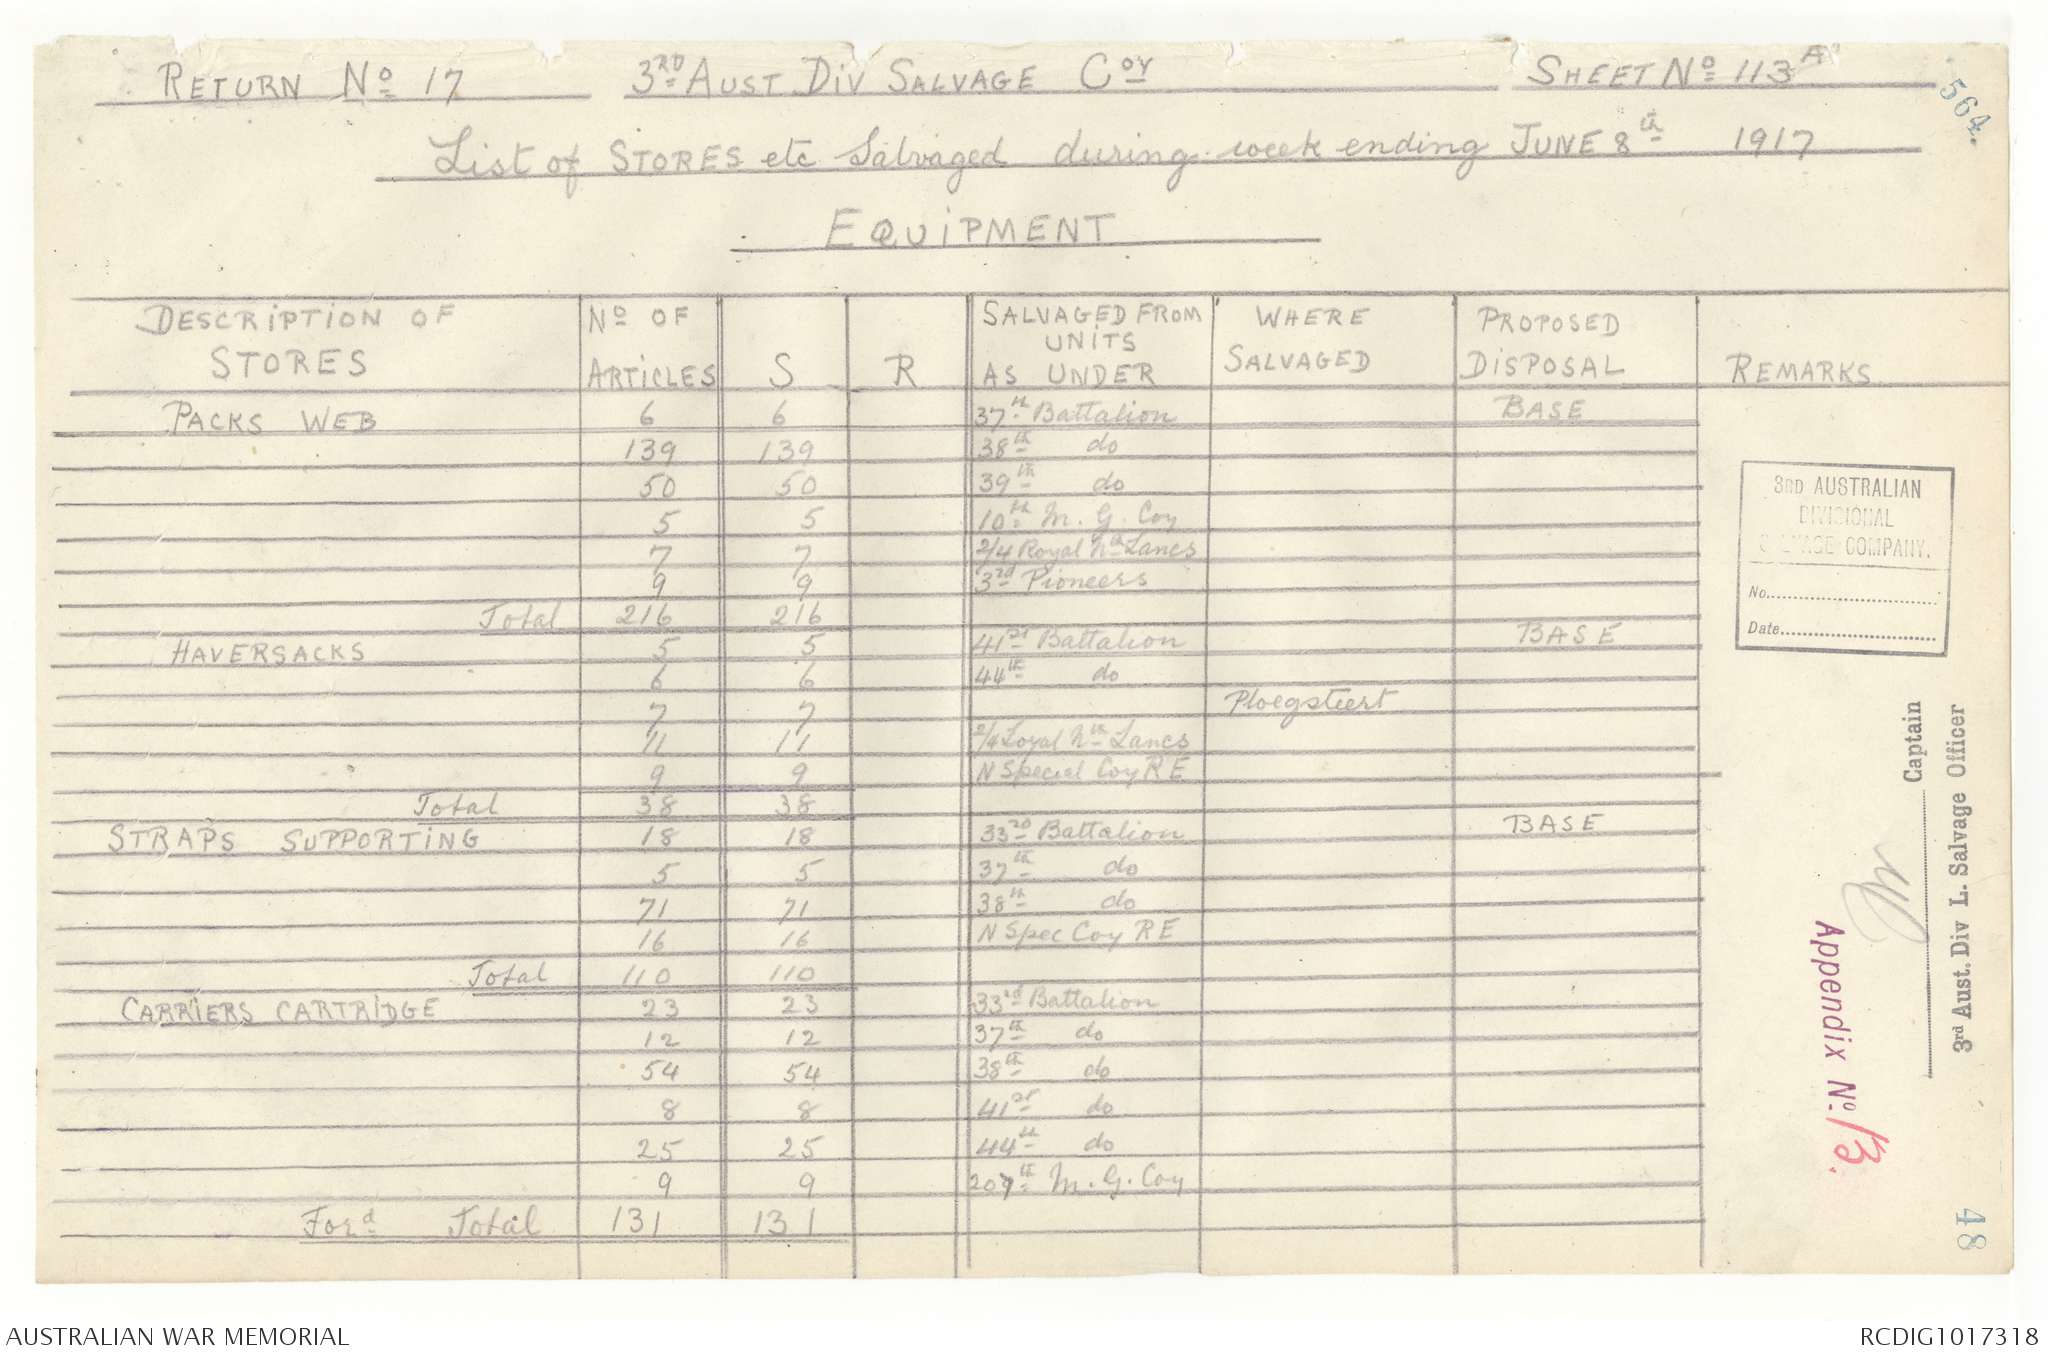 RETURN No 17 3RD AUST DIV SALVAGE Coy SHEET No 113 A
564.
List of STORES etc Salvaged during week ending JUNE 8th 1917
EQUIPMENT
DESCRIPTION OF STORES No OF ARTICLES S R SALVAGED FROM UNITS AS UNDER WHERE SALVAGED PROPOSED DISPOSAL REMARKS
PACKS WEB 6 6 37th Battalion BASE
139 139 38th do
50 50 39th do
5 5 10th M. G. Coy
7 7 2/4 Royal Nth Lancs
9 9 3rd Pioneers
Total 216 216
HAVERSACKS 5 5 41st Battalion BASE
6 6 44th do
7 7 Ploegsteert
11 11 2/4 Loyal Nth Lancs
9 9 N Special Coy R E
Total 38 38
STRAPS SUPPORTING 18 18 33RD Battalion BASE
5 5 37th do
71 71 38th do
16 16 N Spec Coy R E
Total 110 110
CARRIERS CARTRIDGE 23 23 33rd Battalion
12 12 37th do
54 54 38th do
8 8 41st do
25 25 44th do
9 9 207th M. G. Coy
Ford Total 131 131
3RD AUSTRALIAN
DIVISIONAL
SALVAGE COMPANY.
No.
Date
Captain
3rd Aust. Div L. Salvage Officer
Appendix No. 13.
48
AUSTRALIAN WAR MEMORIAL
RCDIG1017318